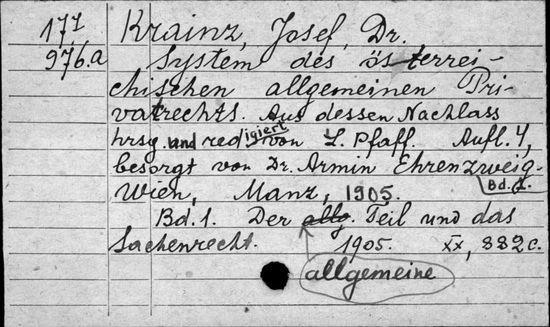 171 Krainz, Josef, Dr.
976.a System des österrei-
chischen allgemeinen Pri-
vatrechts. Aus dessen Nachlass
hrsg. und redigiert von L. Pfaff. Aufl. 4,
besorgt von Dr. Armin Ehrenzweig.
Bd. 1.
Wien, Manz, 1905.
Bd. 1. Der allg. Teil und das
Sachenrecht. 1905. XX, 882 c.
allgemeine